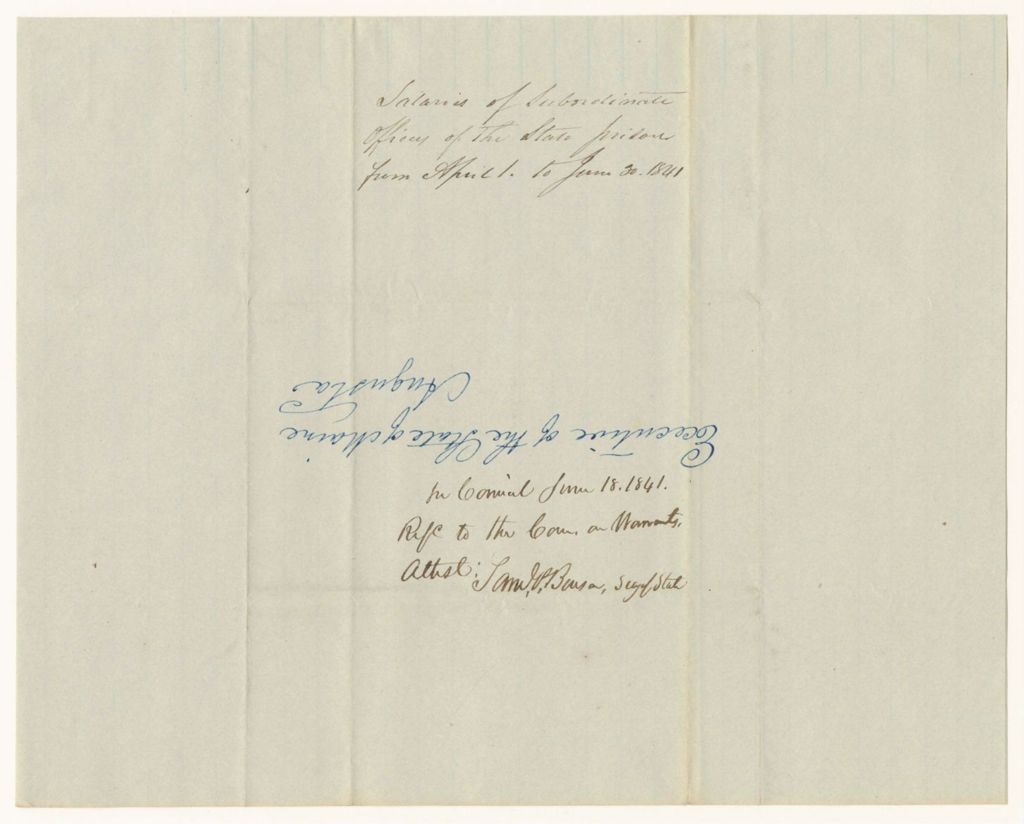 Salaries of Subordinate
Officers of the State prison
from April 1. to June 30. 1841
Executive of the State of Maine
Augusta
In Council June 18. 1841.
Refd to the Com. on Warrants.
Attest: Saml. P. Benson, Secy of State